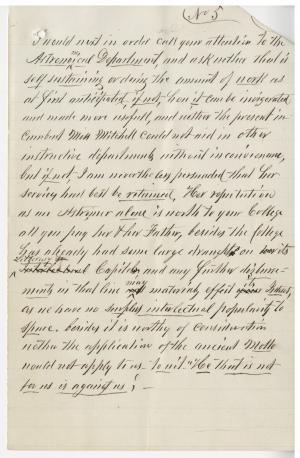 (No 5
I would next in order call your attention to the
Astronomical Department, and ask wether that is
self sustaining or doing the amount of work as
at first anticipated, if not, how it can be invigorated
and made more usefull, and wether the present in
cumbent Miss Mitchell could not aid in other
instructive departments without inconvenance,
but if not, I am nevertheless persuaded that her
services had best be retained, Her reputation
as an Astronomer alone is worth to your College
all you pay her & her Father, besides the College
has already had some large draughts on its
Capital, and any further disburse-
ments in that line may materialy effect its Status,
as we have no surplus intelectual popularity to
spare. besides it is worthy of Consideration
wether the application of the ancient Motto
would not apply to us to wit. "He that is not
for us is against us; —